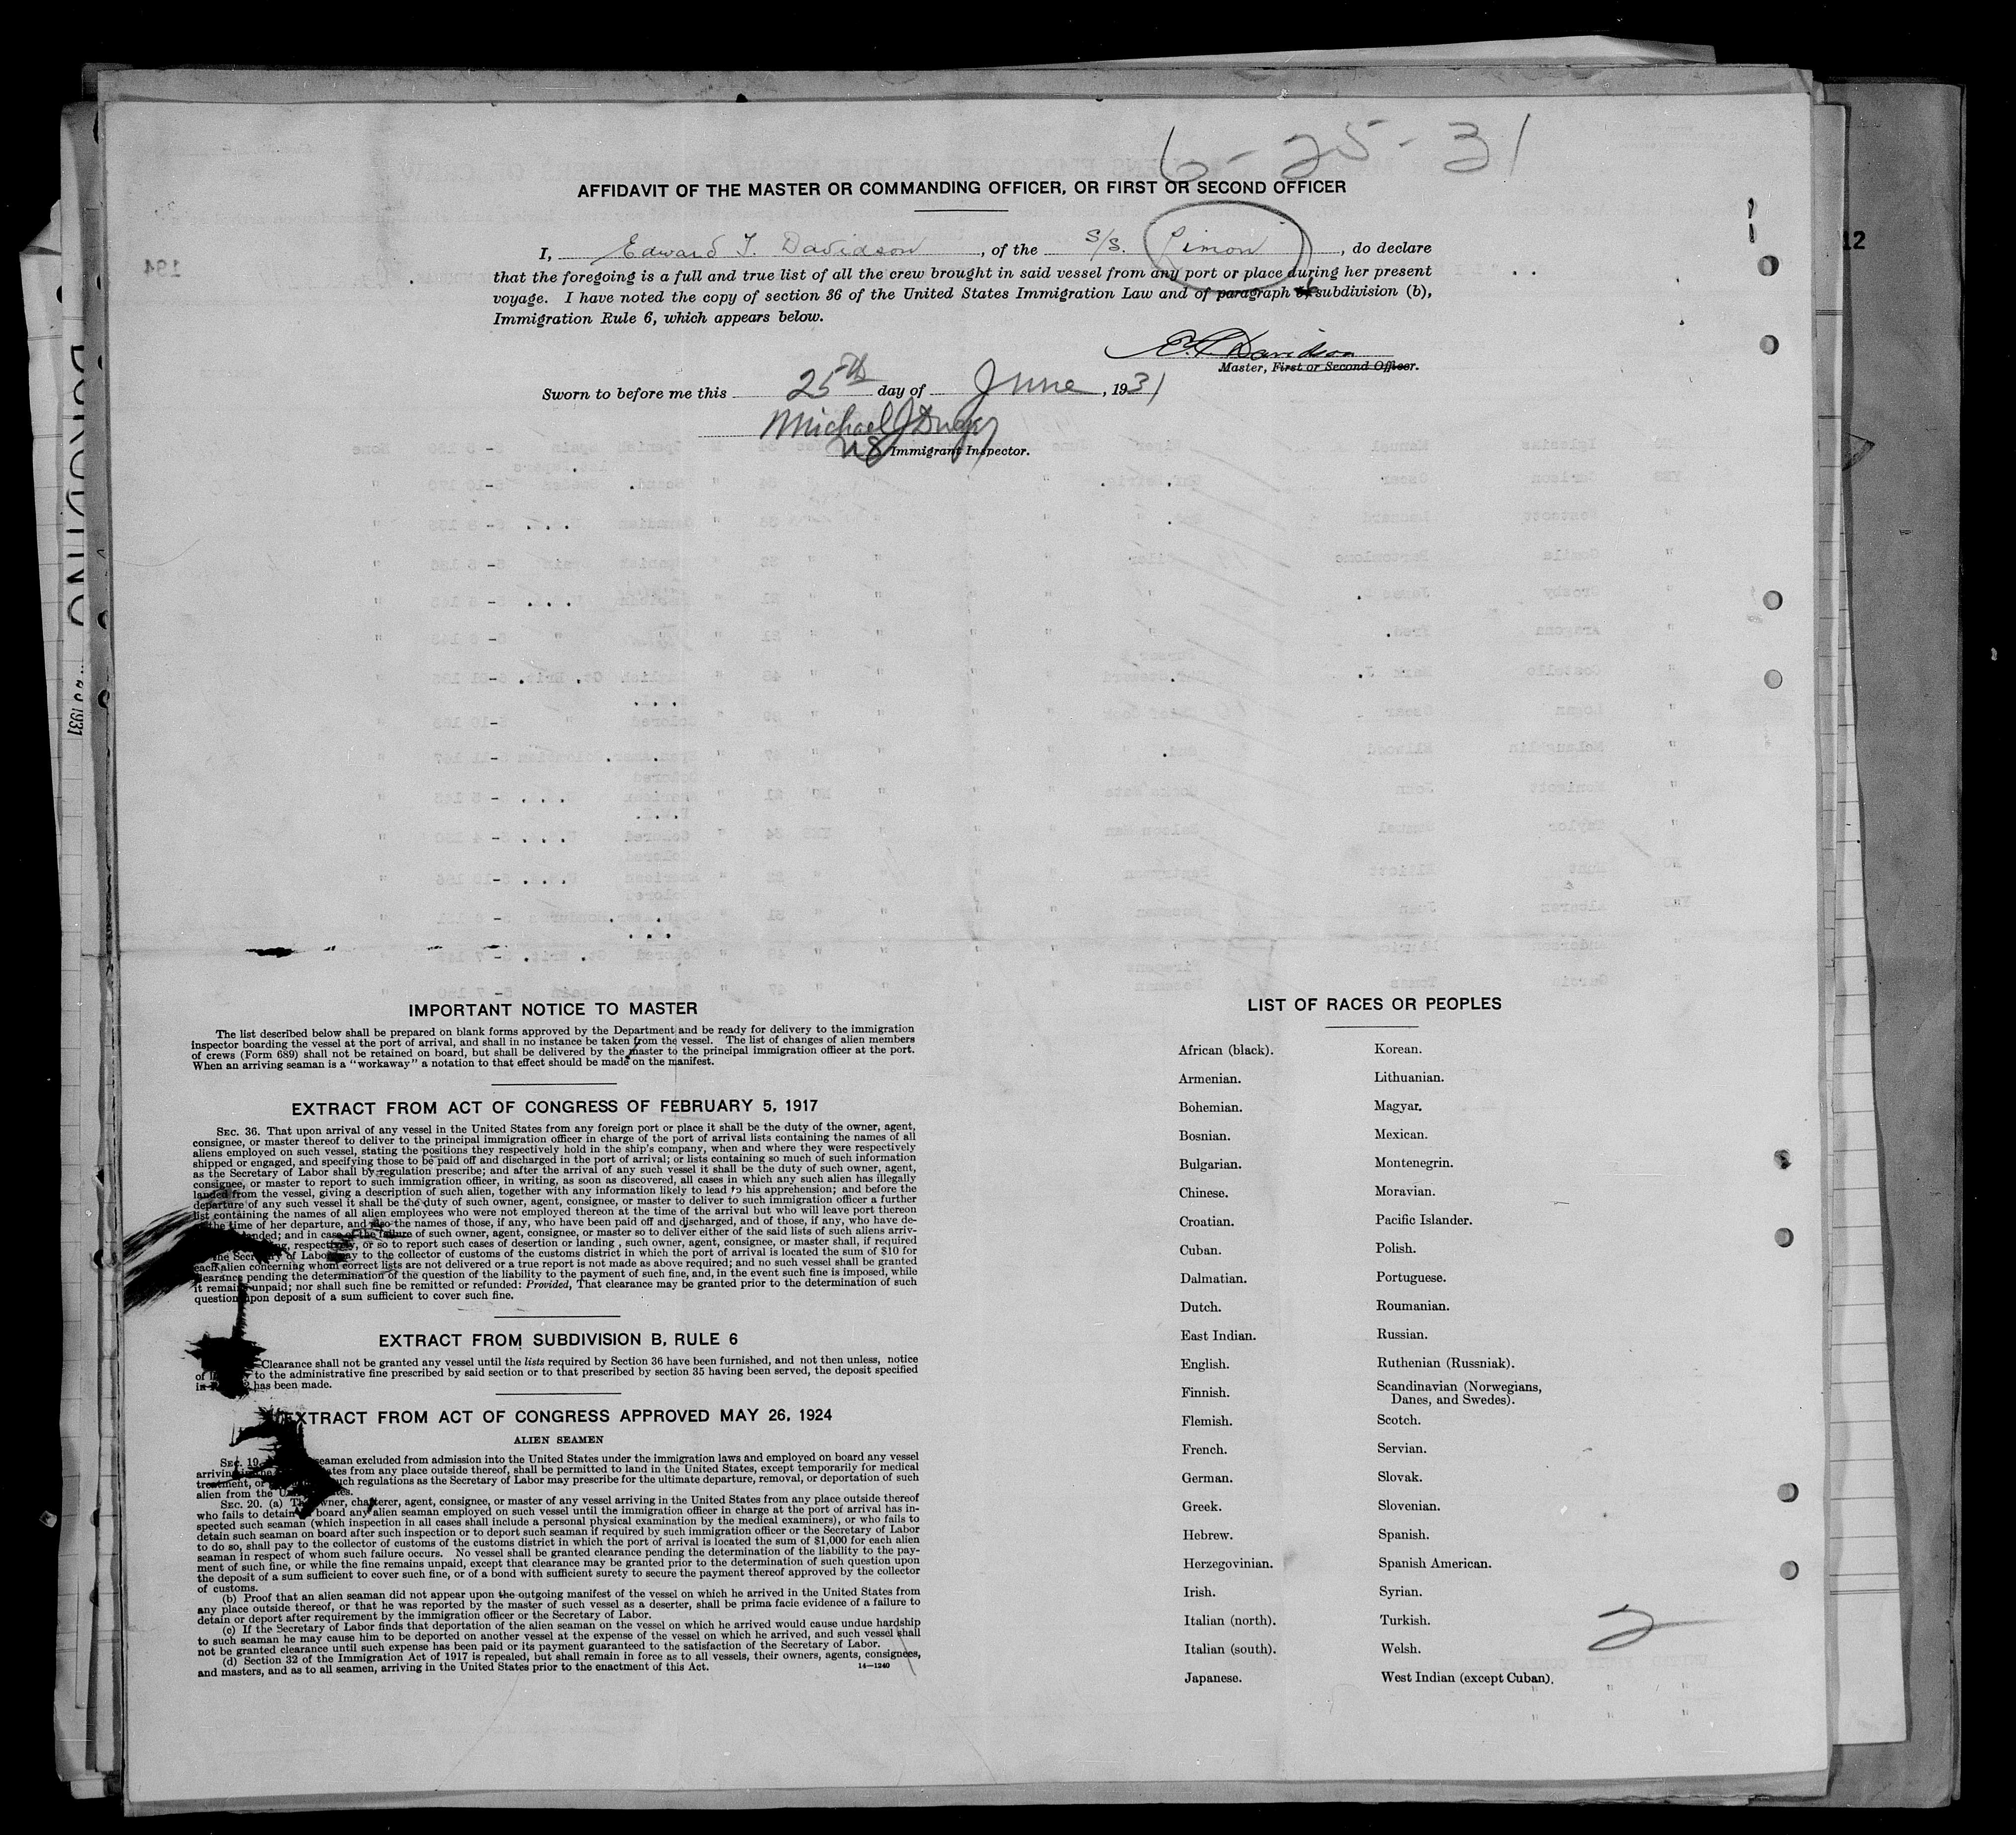 6-25-31
AFFIDAVIT OF THE MASTER OR COMMANDING OFFICER, OR FIRST OR SECOND OFFICER
I, Edward T. Davidson, of the S/S. Limon, do declare
that the foregoing is a full and true list of all the crew brought in said vessel from any port or place during her present
voyage. I have noted the copy of section 36 of the United States Immigration Law and of paragraph subdivision (b),
Immigration Rule 6, which appears below.
E. T. Davidson
Master, First or Second Officer.
Sworn to before me this 25th day of June, 1931
Michael J
US Immigrant Inspector.
12
194
IMPORTANT NOTICE TO MASTER
The list described below shall be prepared on blank forms approved by the Department and be ready for delivery to the immigration
inspector boarding the vessel at the port of arrival, and shall in no instance be taken from the vessel. The list of changes of alien members
of crews (Form 689) shall not be retained on board, but shall be delivered by the master to the principal immigration officer at the port.
When an arriving seaman is a "workaway" a notation to that effect should be made on the manifest.
EXTRACT FROM ACT OF CONGRESS OF FEBRUARY 5, 1917
SEC. 36. That upon arrival of any vessel in the United States from any foreign port or place it shall be the duty of the owner, agent,
consignee, or master thereof to deliver to the principal immigration officer in charge of the port of arrival lists containing the names of all
aliens employed on such vessel, stating the positions they respectively hold in the ship's company, when and where they were respectively
shipped or engaged, and specifying those to be paid off and discharged in the port of arrival; or lists containing so much of such information
as the Secretary of Labor shall by regulation prescribe; and after the arrival of any such vessel it shall be the duty of such owner, agent,
consignee, or master to report to such immigration officer, in writing, as soon as discovered, all cases in which any such alien has illegally
landed from the vessel, giving a description of such alien, together with any information likely to lead to his apprehension; and before the
departure of any such vessel it shall be the duty of such owner, agent, consignee, or master to deliver to such immigration officer a further
list containing the names of all alien employees who were not employed thereon at the time of the arrival but who will leave port thereon
the time of her departure, and also the names of those, if any, who have been paid off and discharged, and of those, if any, who have de-
landed; and in case of the failure of such owner, agent, consignee, or master so to deliver either of the said lists of such aliens arriv-
respectively, or so to report such cases of desertion or landing, such owner, agent, consignee, or master shall, if required
the Secretary of Labor pay to the collector of customs of the customs district in which the port of arrival is located the sum of $10 for
each alien concerning whom correct lists are not delivered or a true report is not made as above required; and no such vessel shall be granted
clearance pending the determination of the question of the liability to the payment of such fine, and, in the event such fine is imposed, while
it remains unpaid; nor shall such fine be remitted or refunded: Provided, That clearance may be granted prior to the determination of such
question upon deposit of a sum sufficient to cover such fine.
EXTRACT FROM SUBDIVISION B, RULE 6
Clearance shall not be granted any vessel until the lists required by Section 36 have been furnished, and not then unless, notice
of to the administrative fine prescribed by said section or to that prescribed by section 35 having been served, the deposit specified
in has been made.
EXTRACT FROM ACT OF CONGRESS APPROVED MAY 26, 1924
ALIEN SEAMEN
SEC. 19. seaman excluded from admission into the United States under the immigration laws and employed on board any vessel
arriving States from any place outside thereof, shall be permitted to land in the United States, except temporarily for medical
treatment, or such regulations as the Secretary of Labor may prescribe for the ultimate departure, removal, or deportation of such
alien from the United States.
SEC. 20. (a) The owner, charterer, agent, consignee, or master of any vessel arriving in the United States from any place outside thereof
who fails to detain on board any alien seaman employed on such vessel until the immigration officer in charge at the port of arrival has in-
spected such seaman (which inspection in all cases shall include a personal physical examination by the medical examiners), or who fails to
detain such seaman on board after such inspection or to deport such seaman if required by such immigration officer or the Secretary of Labor
to do so, shall pay to the collector of customs of the customs district in which the port of arrival is located the sum of $1,000 for each alien
seaman in respect of whom such failure occurs. No vessel shall be granted clearance pending the determination of the liability to the pay-
ment of such fine, or while the fine remains unpaid, except that clearance may be granted prior to the determination of such question upon
the deposit of a sum sufficient to cover such fine, or of a bond with sufficient surety to secure the payment thereof approved by the collector
of customs.
(b) Proof that an alien seaman did not appear upon the outgoing manifest of the vessel on which he arrived in the United States from
any place outside thereof, or that he was reported by the master of such vessel as a deserter, shall be prima facie evidence of a failure to
detain or deport after requirement by the immigration officer or the Secretary of Labor.
(c) If the Secretary of Labor finds that deportation of the alien seaman on the vessel on which he arrived would cause undue hardship
to such seaman he may cause him to be deported on another vessel at the expense of the vessel on which he arrived, and such vessel shall
not be granted clearance until such expense has been paid or its payment guaranteed to the satisfaction of the Secretary of Labor.
(d) Section 32 of the Immigration Act of 1917 is repealed, but shall remain in force as to all vessels, their owners, agents, consignees,
and masters, and as to all seamen, arriving in the United States prior to the enactment of this Act.
14—1240
LIST OF RACES OR PEOPLES
African (black). Korean.
Armenian. Lithuanian.
Bohemian. Magyar.
Bosnian. Mexican.
Bulgarian. Montenegrin.
Chinese. Moravian.
Croatian. Pacific Islander.
Cuban. Polish.
Dalmatian. Portuguese.
Dutch. Roumanian.
East Indian. Russian.
English. Ruthenian (Russniak).
Finnish. Scandinavian (Norwegians,
Danes, and Swedes).
Flemish. Scotch.
French. Servian.
German. Slovak.
Greek. Slovenian.
Hebrew. Spanish.
Herzegovinian. Spanish American.
Irish. Syrian.
Italian (north). Turkish.
Italian (south). Welsh.
Japanese. West Indian (except Cuban).
2